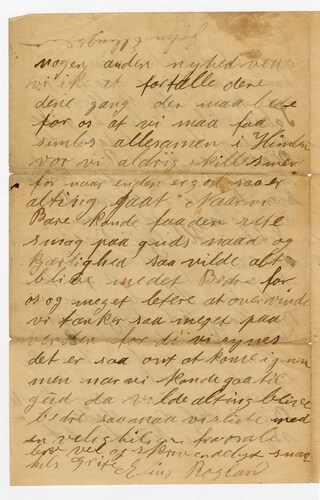 nogen anden nyhed ven
vi ike at fortalle dere
dene gang der maa bede
for os at vi maa faa
samles allesamen i Himlen
vor vi aldrig skilles mer
for naar enden er god saa er
alting gaat Naar vi
Bare kunde faa den rete
smag paa guds naad og
kjærlighed saa vilde alt
blive meget Bedre for
os og meget letere at overvinde
vi tænker saa meget paa
verden for di vi synes
det er saa ont at kome igenem
men nar vi kunde gaa til
gud da vilde alting blive
bedre saa maa vi slute med
en velig hilsen fra os alle
lev vel og skriv endelig snar
hils Grite Elius Roglan